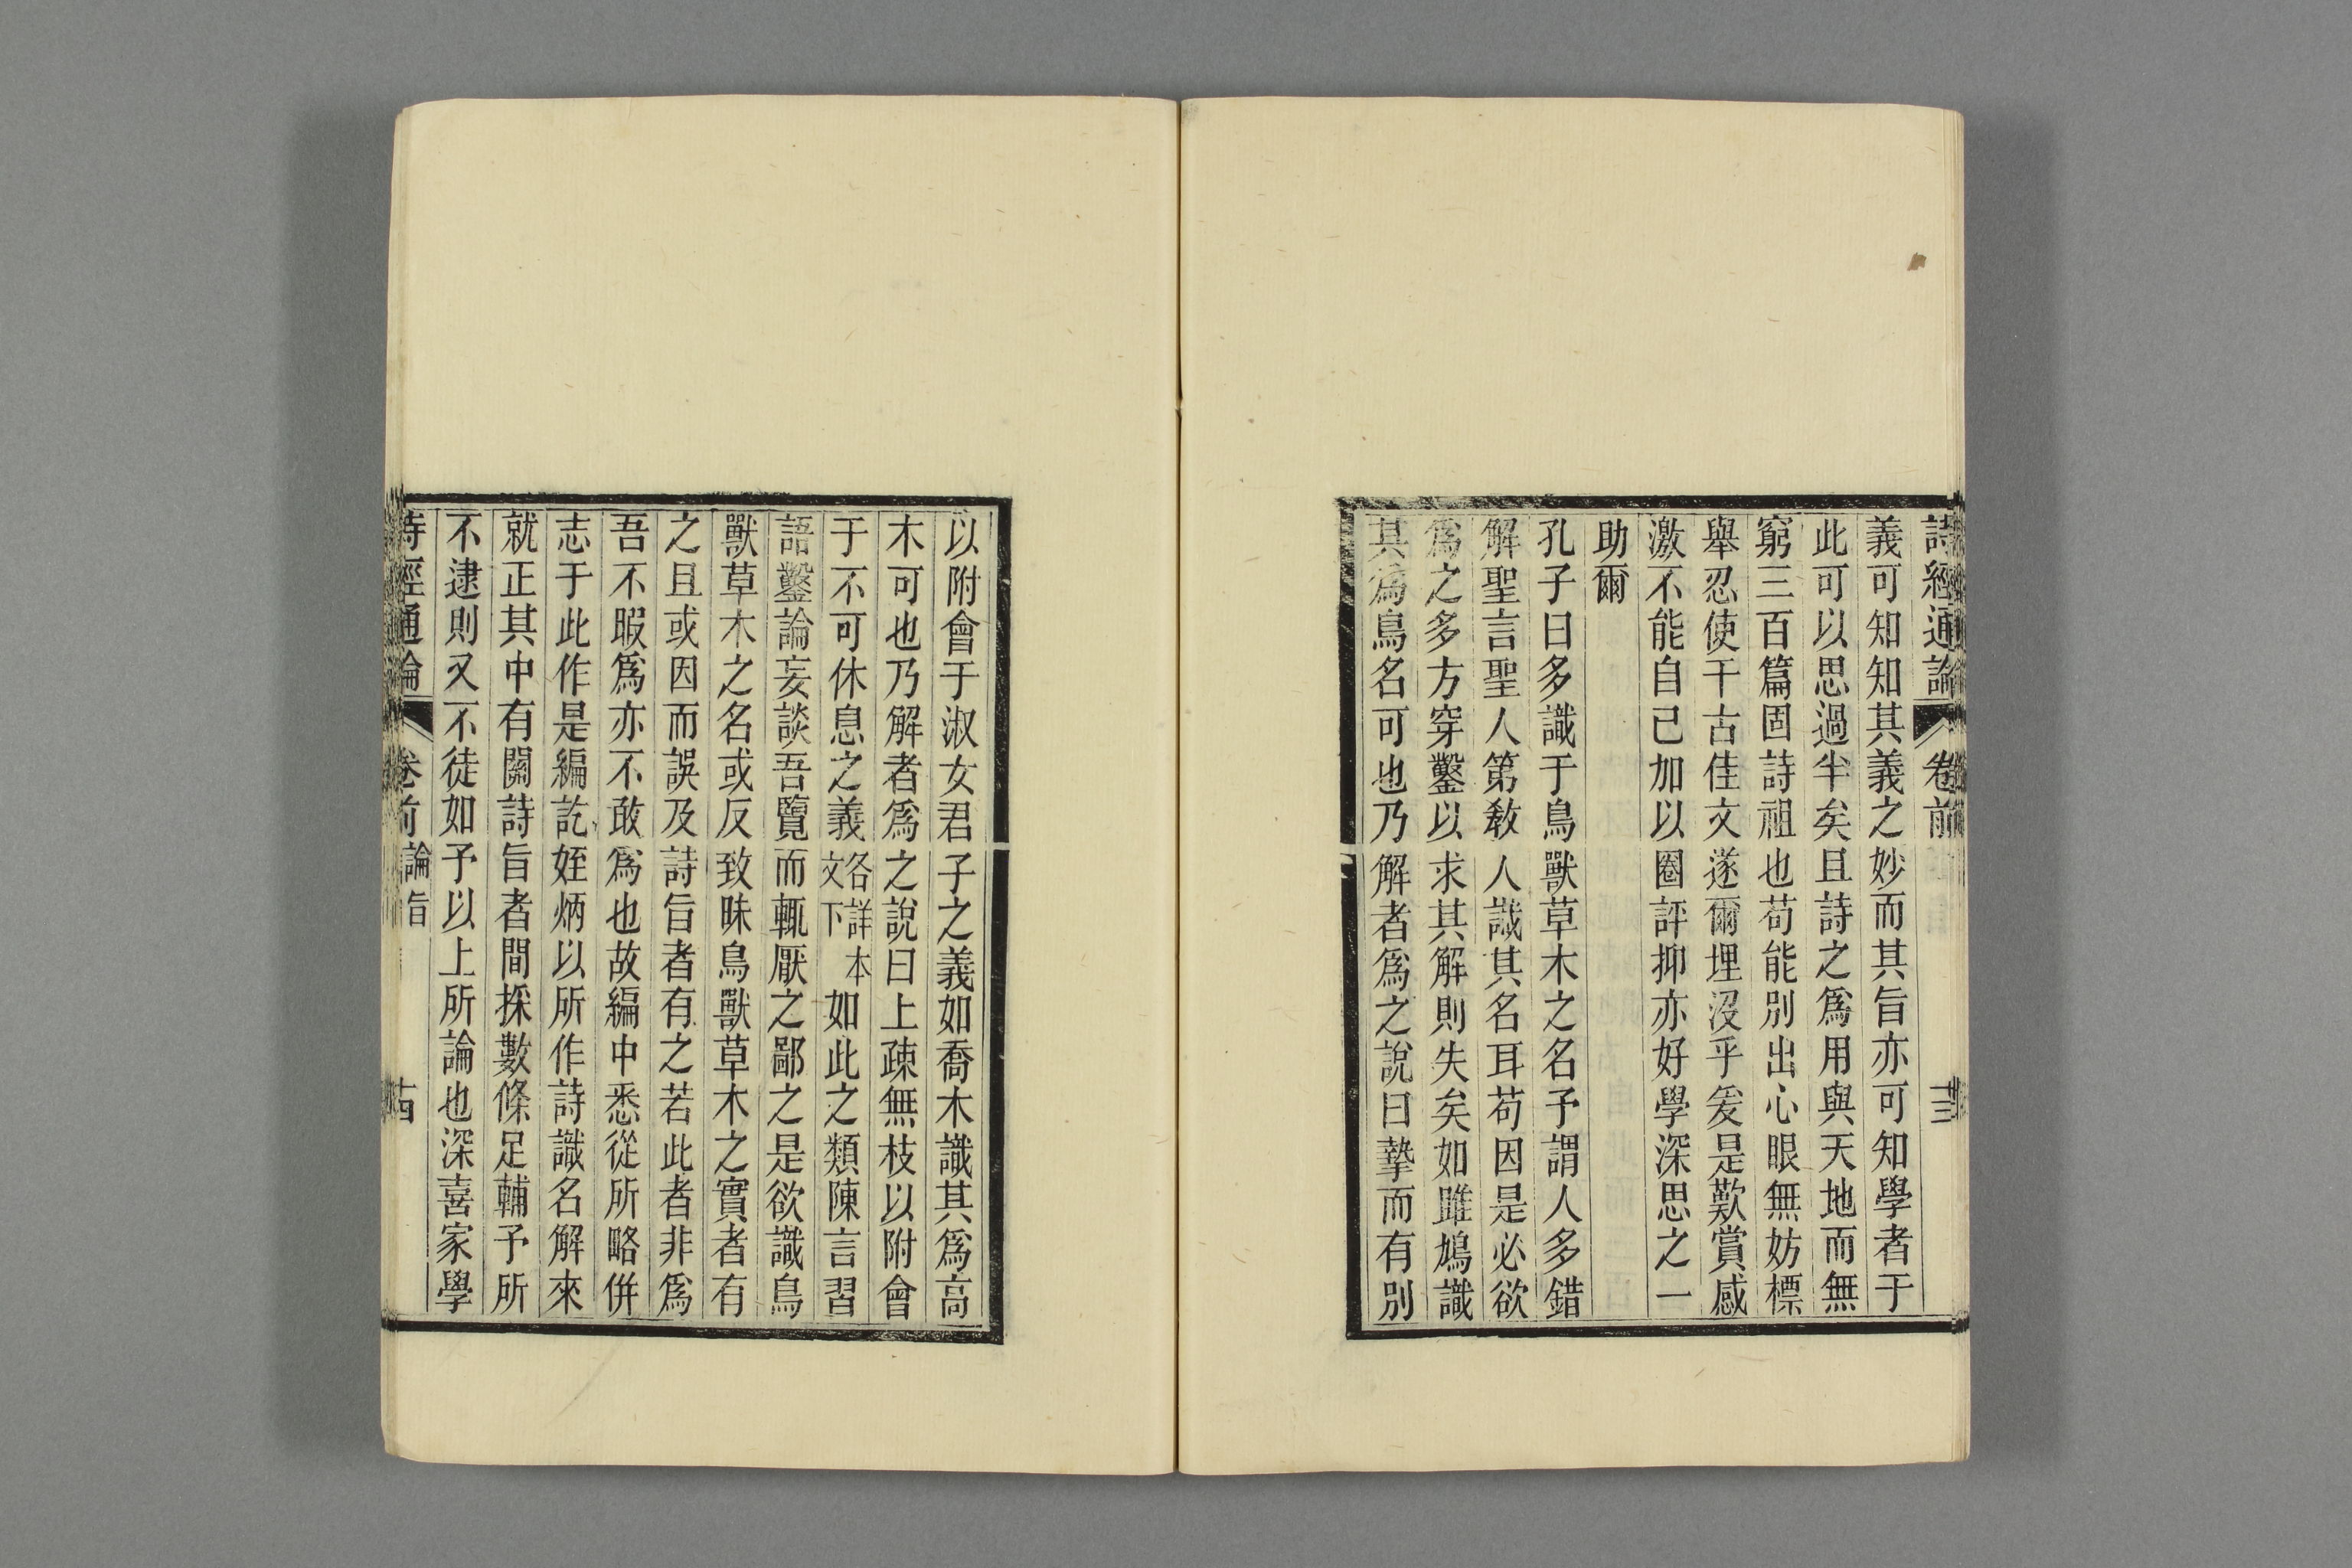 詩經通論 卷前 十三
義可知知其義之妙而其旨亦可知學者于
此可以思過半矣且詩之爲用與天地而無
窮三百篇固詩祖也苟能別出心眼無妨標
舉忍使千古佳文遂爾埋沒乎爰是歎賞感
激不能自已加以圈評抑亦好學深思之一
助爾
孔子曰多識于鳥獸草木之名予謂人多錯
解聖言聖人第教人識其名耳苟因是必欲
爲之多方穿鑿以求其解則失矣如雎鳩識
其爲鳥名可也乃解者爲之說曰摯而有別
以附會于淑女君子之義如喬木識其爲高
木可也乃解者爲之說曰上疎無枝以附會
于不可休息之義各詳本文下如此之類陳言習
語鑿論妄談吾覽而輒厭之鄙之是欲識鳥
獸草木之名或反致昧鳥獸草木之實者有
之且或因而誤及詩旨者有之若此者非爲
吾不暇爲亦不敢爲也故編中悉從所略倂
志于此作是編訖姪炳以所作詩識名解來
就正其中有關詩旨者間採數條足輔予所
不逮則又不徒如予以上所論也深喜家學
詩經通論 卷前 論旨 十四